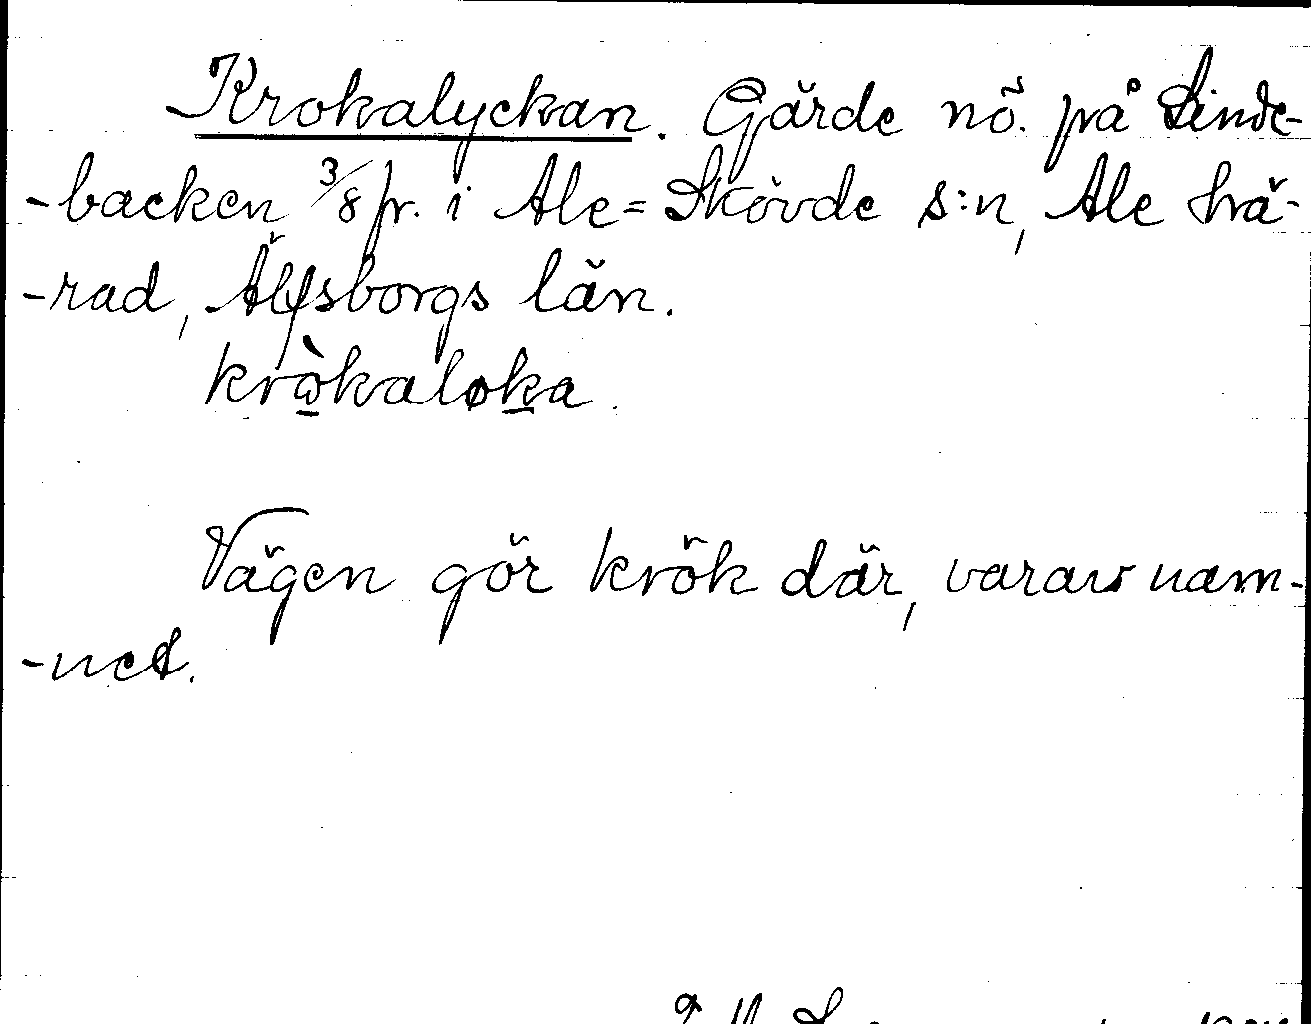 Krokalyckan. Gärde nö. på Linde-
-backen 3/8 fr. i Ale=Skövde s:n, Ale hä-
-rad, Älfsborgs län.
krὼkaløka.
Vägen gör krök där, varav nam-
-net.